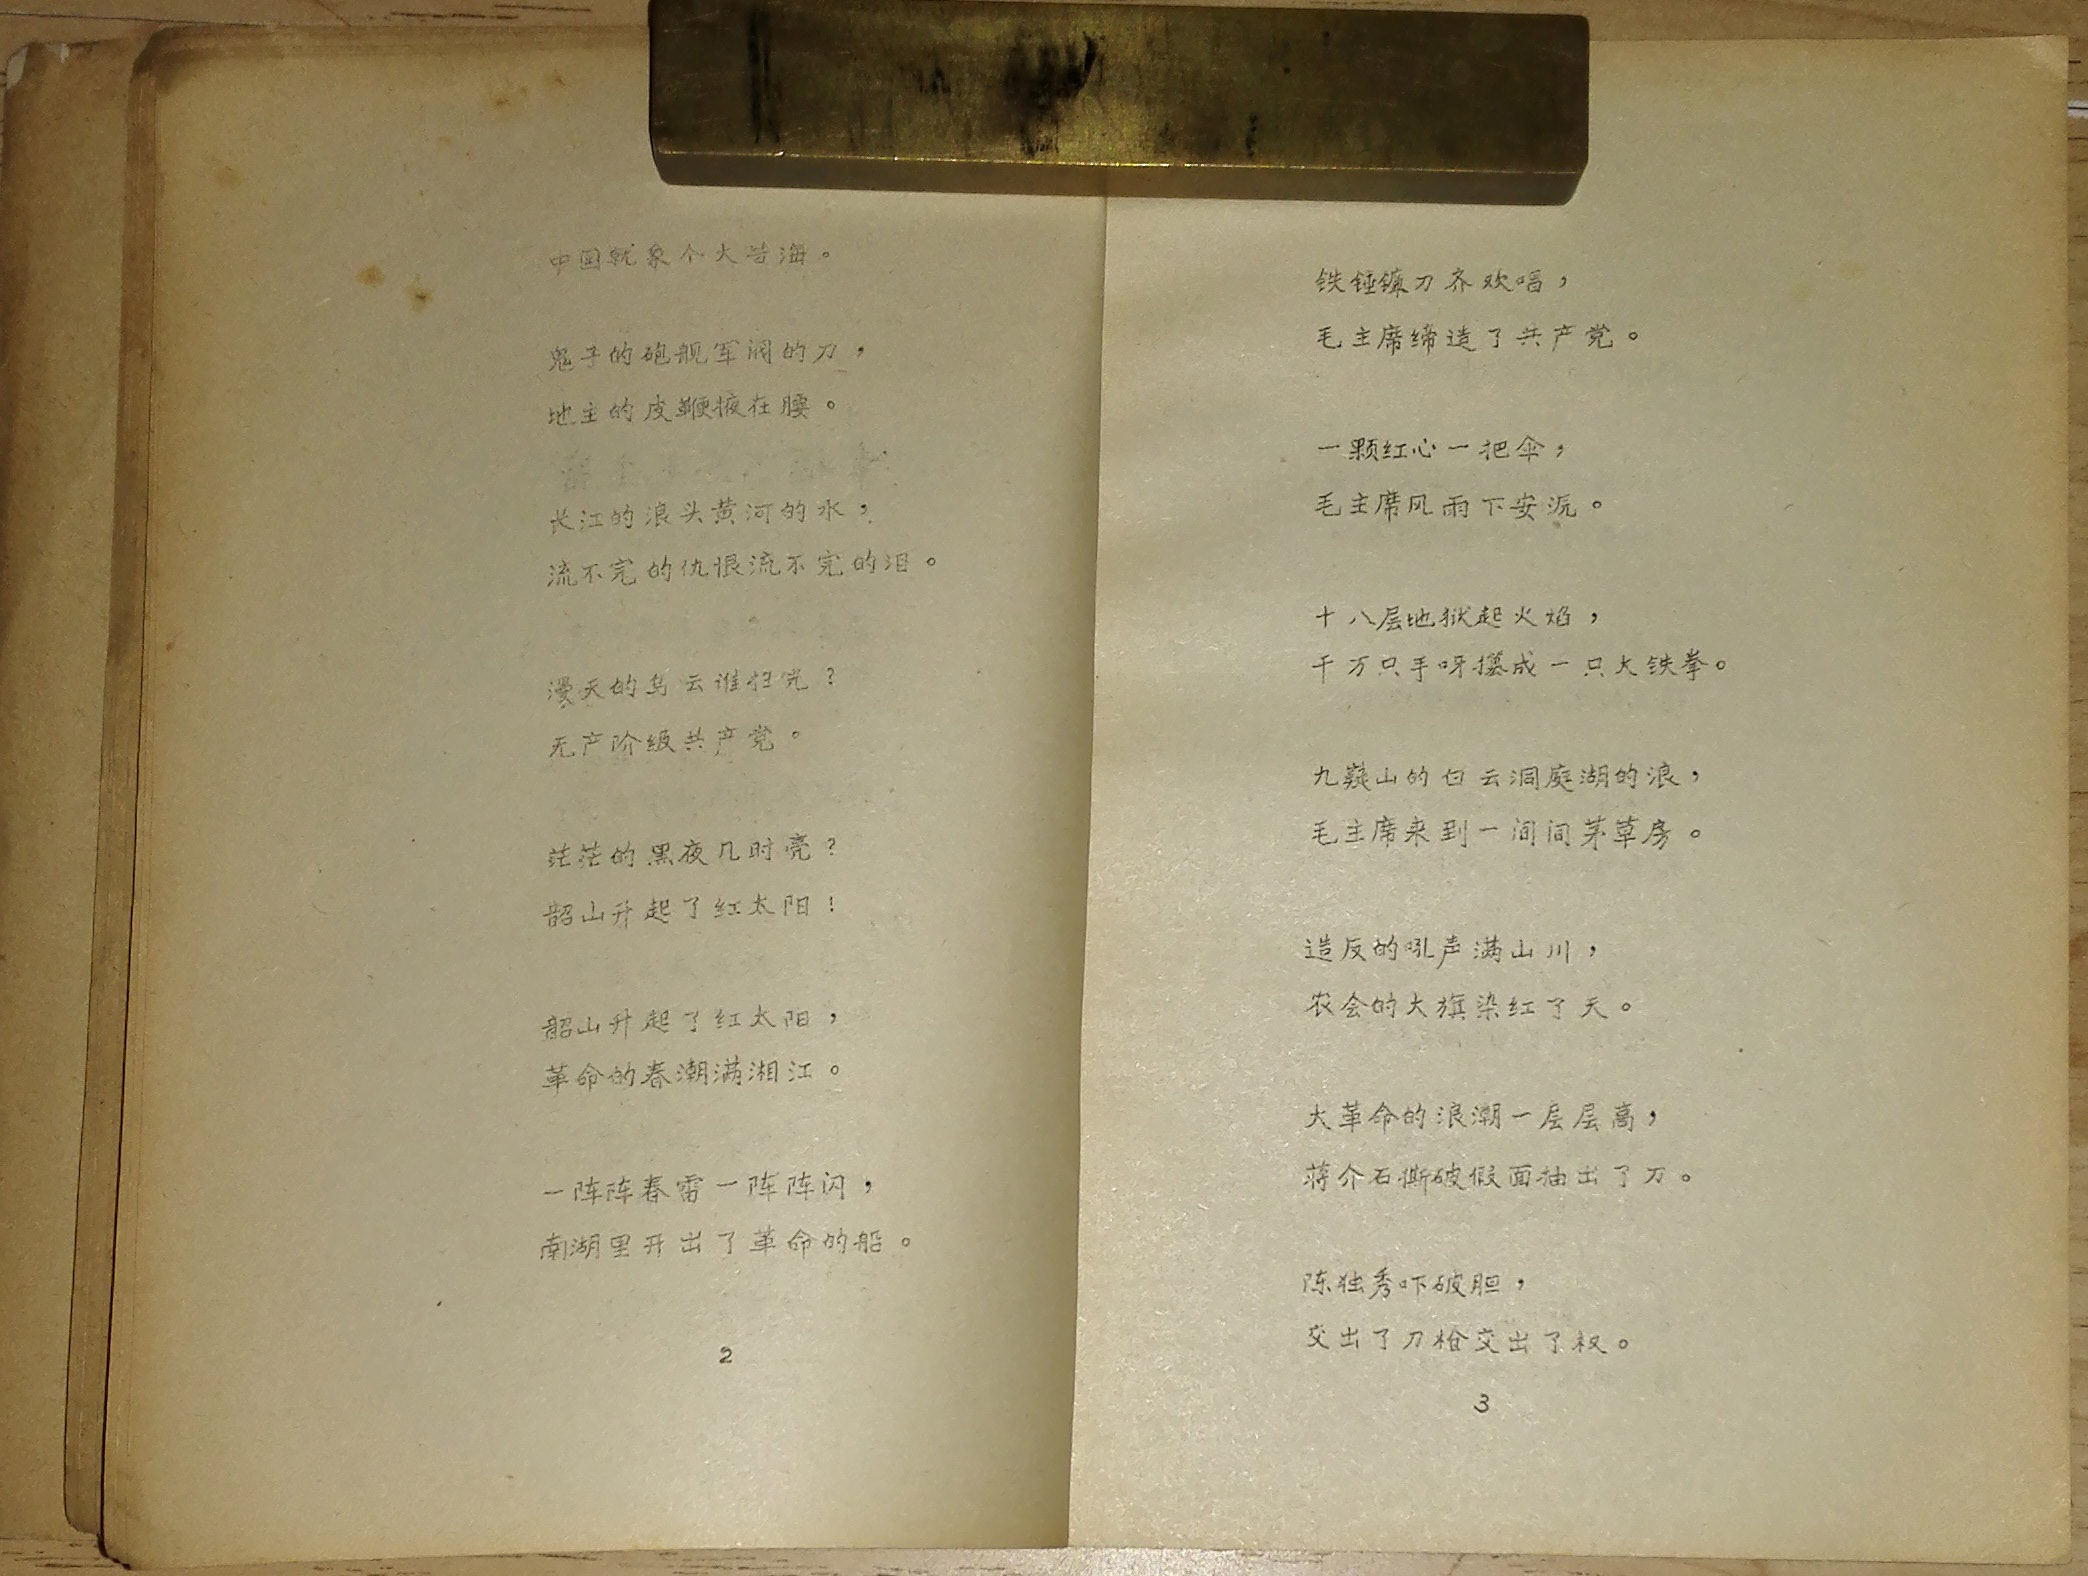 中国就象个大苦海。
鬼子的砲舰军阀的刀，
地主的皮鞭掖在腰。
长江的浪头黄河的水，
流不完的仇恨流不完的泪。
漫天的乌云谁扫光？
无产阶级共产党。
茫茫的黑夜几时亮？
韶山升起了红太阳！
韶山升起了红太阳，
革命的春潮满湘江。
一阵阵春雷一阵阵闪，
南湖里开出了革命的船。
2
铁锤镰刀齐欢唱，
毛主席缔造了共产党。
一颗红心一把伞，
毛主席风雨下安沅。
十八层地狱起火焰，
千万只手呀攥成一只大铁拳。
九嶷山的白云洞庭湖的浪，
毛主席来到一间间茅草房。
造反的吼声满山川，
农会的大旗染红了天。
大革命的浪潮一层层高，
蒋介石撕破假面抽出了刀。
陈独秀吓破胆，
交出了刀枪交出了权。
3